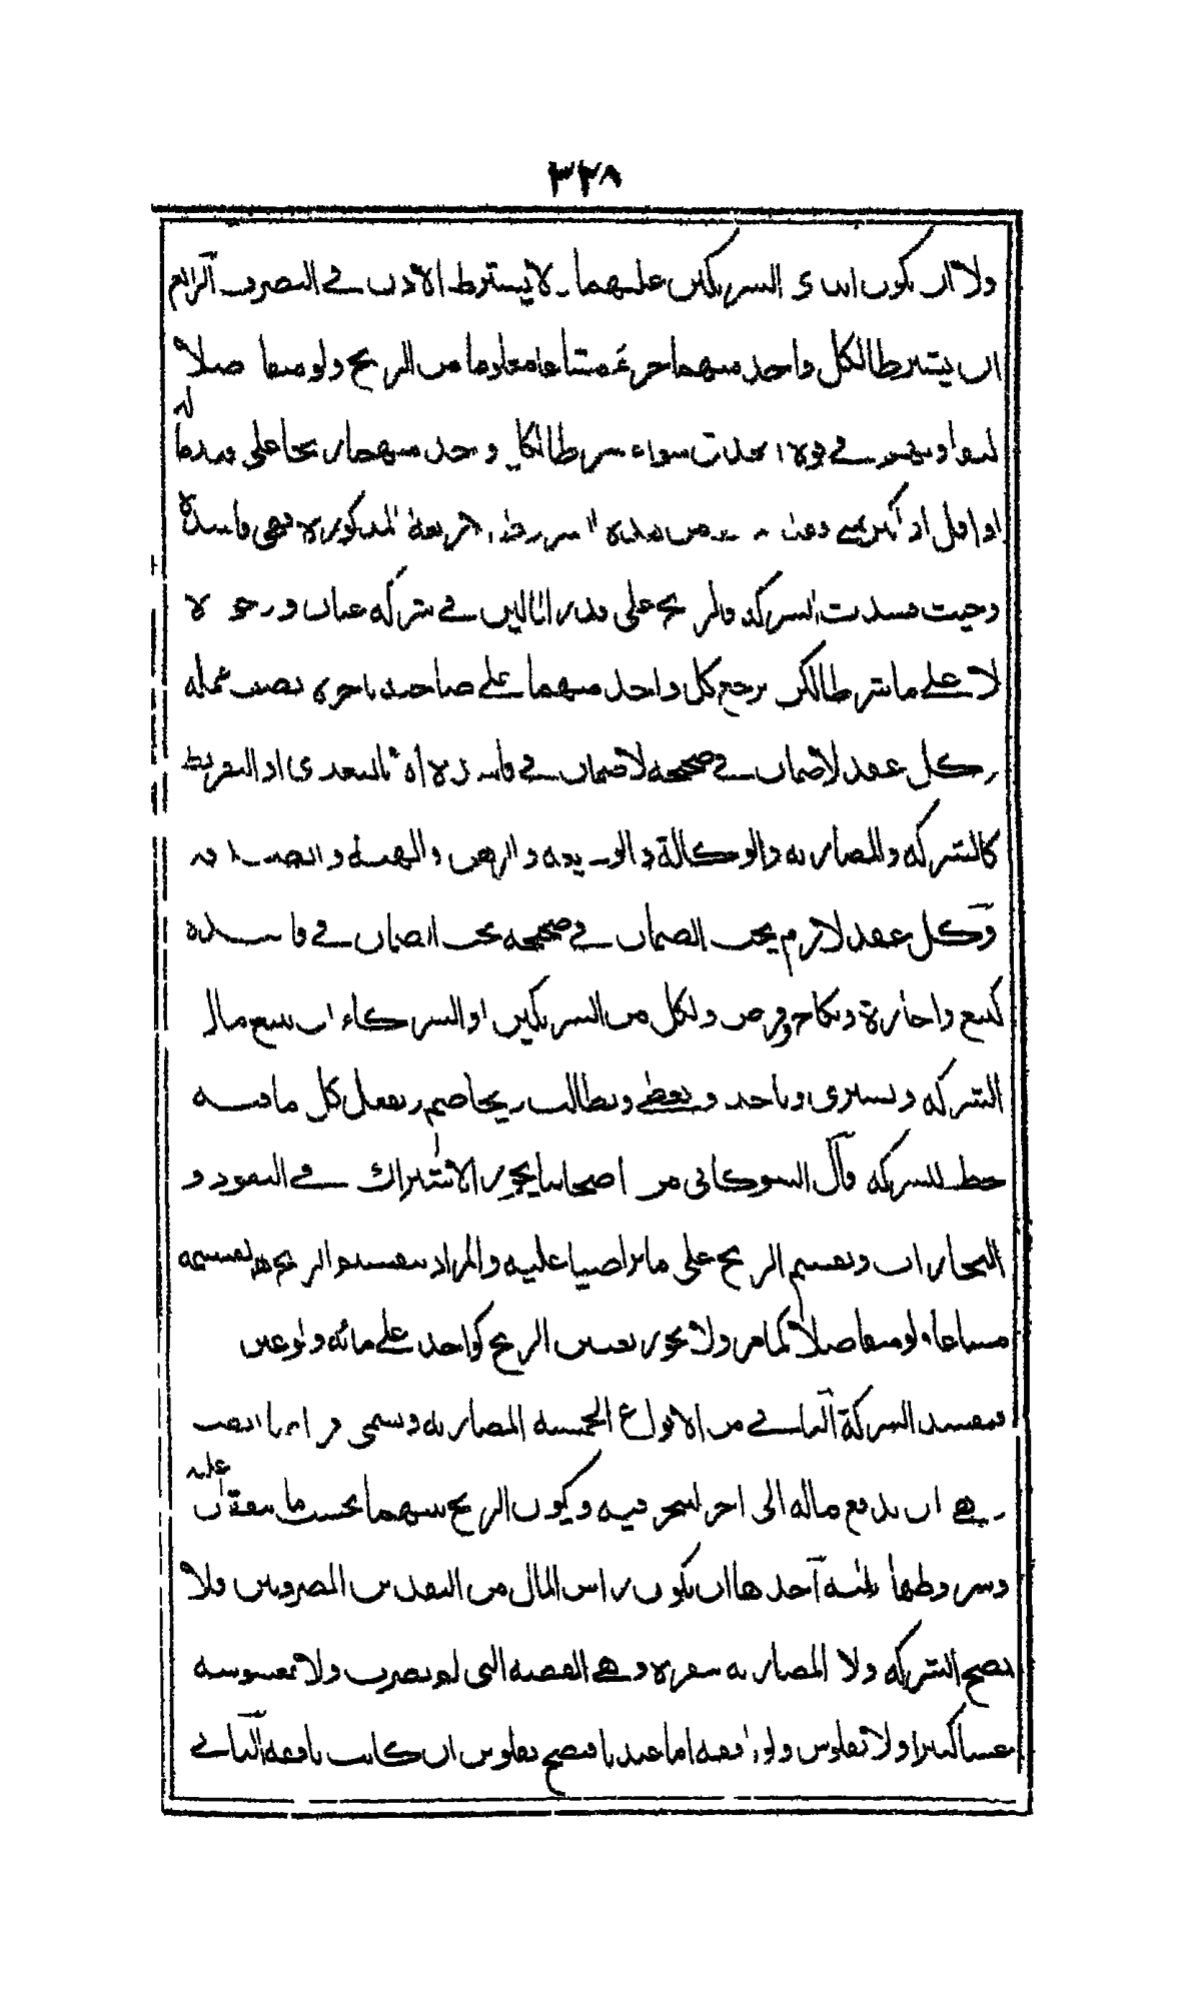 ٣٢٨
ولا ان يكون ايدي الشريكين عليهما ولا يشترط الاذن في التصرف الرابع
ان يشترطا لكل واحد منهما جزءً مشاعا معلوما من الربح ولو متفاضلا
سواء شرطا لكل واحد منهما ربحا على قدر ماله
او اقل او اكثر فمتى فقد من هذه الشروط الاربعة المذكورة فهي فاسدة
وحيث فسدت الشركة فالربح على قدر المالين في شركة عنان ووجوه
لا على ما شرطا لكن يرجع كل واحد منهما على صاحبه باجرة نصف عمله
وكل عقد لا ضمان في صحيحه لا ضمان في فاسده الا بالتعدي او التفريط
كالشركة والمضاربة والوكالة والوديعة والرهن والهبة والصدقة
وكل عقد لازم يجب الضمان في صحيحه يجب الضمان في فاسده
كبيع واجارة ونكاح وقرض ولكل من الشريكين او الشركاء ان يبيع مال
الشركة ويشتري وياخذ ويعطي ويطالب ويخاصم ويفعل كل ما فيه
حظ للشركة قال الشوكاني من اصحابنا يجوز الاشتراك في النقود و
التجارات ويقسم الربح على ما تراضيا عليه والمراد بتقسيم الربح تقسيمه
مشاعا ولو متفاضلا كما مر ولا يجوز تعيين الربح كواحد على مائة ولو عين
فتفسد الشركة الثاني من الانواع الخمسة المضاربة وتسمى قراضا ايضا
وهي ان يدفع ماله الى اخر ليتجر فيه ويكون الربح بينهما بحسب ما يتفقان عليه
وشروطها ثلثة احدها ان يكون راس المال من النقدين المضروبين ولا
تصح الشركة ولا المضاربة بنقرة وهي الفضة التي لم تضرب ولا مغشوشة
غشا كثيرا ولا بفلوس ولو نافقة اما عندنا فتصح بفلوس ان كانت نافقة الثاني